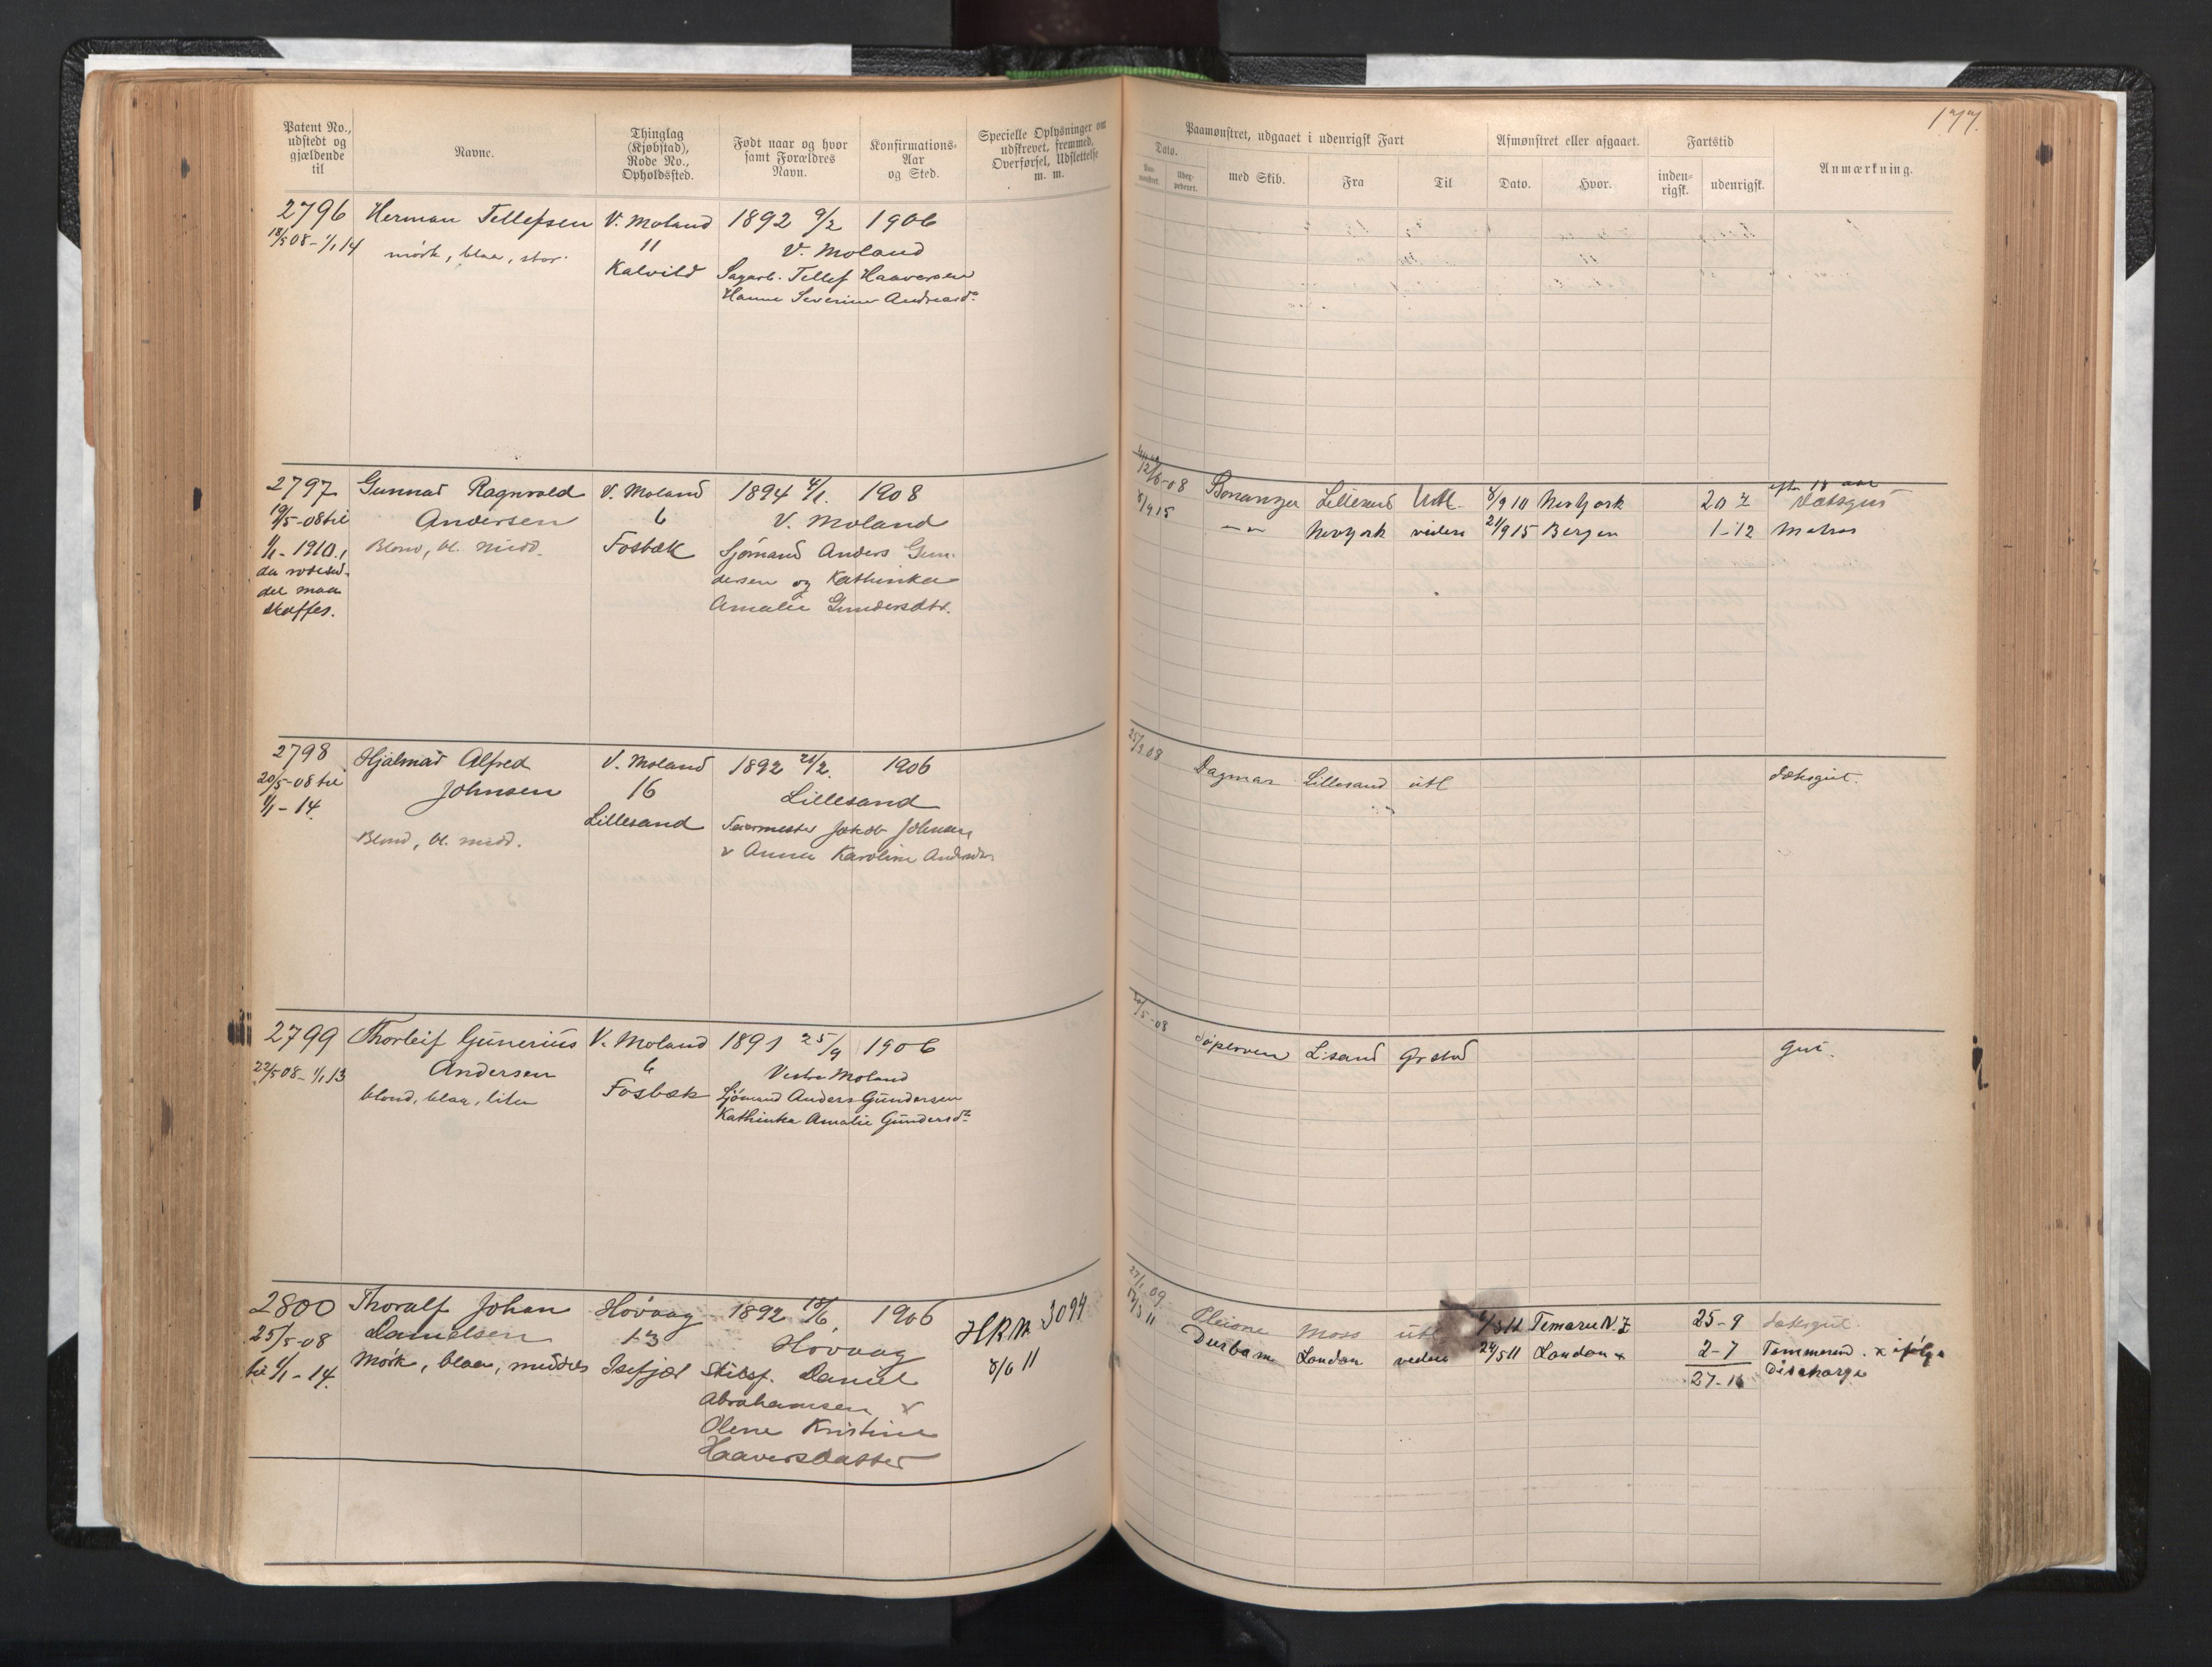 177.
Patent No., udstedt og gjældende til
Navne.
Thinglag (Kjøbstad), Rode No., Opholdssted.
Født naar og hvor samt Forældres Navn.
Konfirmations-Aar og Sted.
Specielle Oplysninger om udskrevet, fremmed, Overførsel, Udslettelse m. m.
Paamønstret, udgaaet i udenrigsk Fart
Afmønstret eller afgaaet.
Fartstid
Anmærkning.
Dato.
med Skib.
Fra
Til
Dato.
Hvor.
inden-rigsk.
udenrigsk.
2796 Herman Tellefsen V. Moland 1892 9/2 1906
18/5 08 - 1/1 14 mørk, blaa, stor. 11 V. Moland
Kalvild Sagarb. Tellef Haaversen
Hanne Severine Andreasd.
2797 Gunnar Ragnvald V. Moland 1894 4/1. 1908
19/5-08 til Andersen 6 V. Moland
1/1-1910., Blond, bl. midd. Fosbæk Sjømand Anders Gun-
da rodesed- dersen og Kathinka
del maa Amalie Gundersdtr.
skaffes.
12/6-08 Bonanza Lillesand Utl. 8/9 10 NewYork 20 efter 18 aar Dæksgut
8/9 15 — " — NewYork videre 21/9 15 Bergen 1-12 Matros
2798 Hjalmar Alfred V. Moland 1892 21/2. 1906
20/5-08 til Johnsen 16 Lillesand
1/1-14. Lillesand Jakob Johnsen
Blond, bl. midd. & Anna Karoline
25/9 08 Dagmar Lillesand utl dæksgut.
2799 Thorleif Gunerius V. Moland 1891 25/9 1906
22/5 08 - 1/1 13 Andersen 6 Vestre Moland
blond, blaa, liten Fosbæk Sjømand Anders Gundersen
Kathinka Amalie Gundersd.
/5-08 L.sand gut.
2800 Thoralf Johan Høvaag 1892 18/6. 1906 HRM 3094
25/5-08 Danielsen 13 Høvaag 8/6 11
til 1/1-14. Mørk, blaa, middels Isefjær Skibsf. Daniel
Abrahamsen &
Olene Kristine
Haaversdatter
27/1 09 Pleione Moss utl Temaru N.Z 25-9 dæksgut.
11 Durbam London videre 24/5 11 London x 2-7 Tømmermd. x ifølge
27-16 Discharge